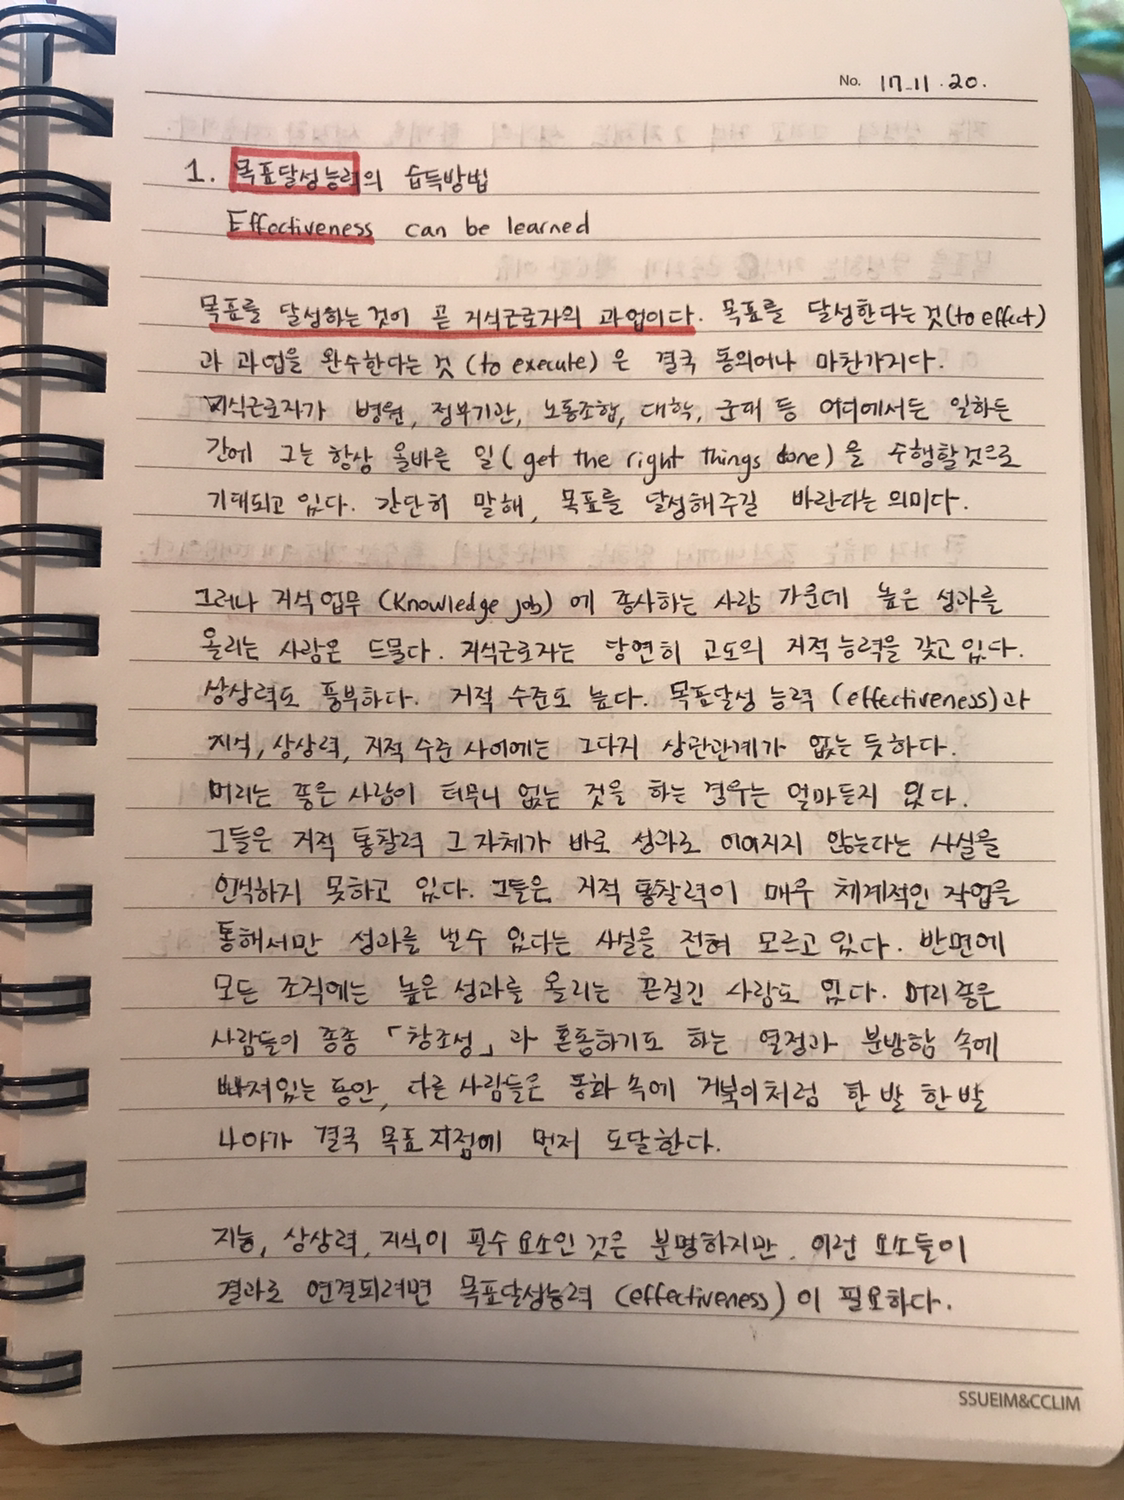 No. 17.11.20.
1. 목표달성능력의 습득방법
Effectiveness can be learned
목표를 달성하는 것이 곧 지식근로자의 과업이다. 목표를 달성한다는 것(to effect)
과 과업을 완수한다는 것 (to execute) 은 결국 동의어나 마찬가지다.
지식근로자가 병원, 정부기관, 노동조합, 대학, 군대 등 어디에서든 일하든
간에 그는 항상 올바른 일( get the right things done) 을 수행할것으로
기대되고 있다. 간단히 말해, 목표를 달성해주길 바란다는 의미다.
그러나 지식 업무 (knowledge job) 에 종사하는 사람 가운데 높은 성과를
올리는 사람은 드물다. 지식근로자는 당연히 고도의 지적 능력을 갖고 있다.
상상력도 풍부하다. 지적 수준도 높다. 목표달성 능력 (effectiveness)과
지식, 상상력, 지적 수준 사이에는 그다지 상관관계가 없는 듯하다.
머리는 좋은 사람이 터무니 없는 것을 하는 경우는 얼마든지 있다.
그들은 지적 통찰력 그 자체가 바로 성과로 이어지지 않는다는 사실을
인식하지 못하고 있다. 그들은 지적 통찰력이 매우 체계적인 작업을
통해서만 성과를 낼수 있다는 사실을 전혀 모르고 있다. 반면에
모든 조직에는 높은 성과를 올리는 끈질긴 사람도 있다. 머리 좋은
사람들이 종종 「창조성」과 혼동하기도 하는 열정과 분방함 속에
빠져있는 동안, 다른 사람들은 동화 속에 거북이처럼 한 발 한 발
나아가 결국 목표 지점에 먼저 도달한다.
지능, 상상력, 지식이 필수 요소인 것은 분명하지만, 이런 요소들이
결과로 연결되려면 목표달성능력 (effectiveness) 이 필요하다.
SSUEIM&CCLIM